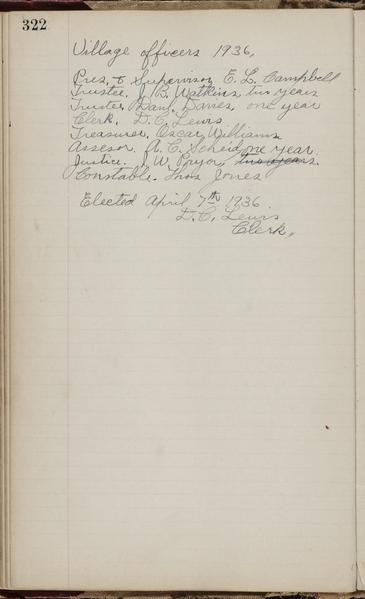 322
Village officers 1936,
Pres. & Supervisor E. L. Campbell
Trustee, J. R. Watkins, two years
Trustee, Danl. Davies, one year
Clerk, D. C. Lewis
Treasurer, Oscar Williams
Assesor. A. C. Scheid one year.
Justice. J. W. Pryor, two years.
Constable. Thos Jones
Elected April 7th 1936
D. C. Lewis
Clerk,